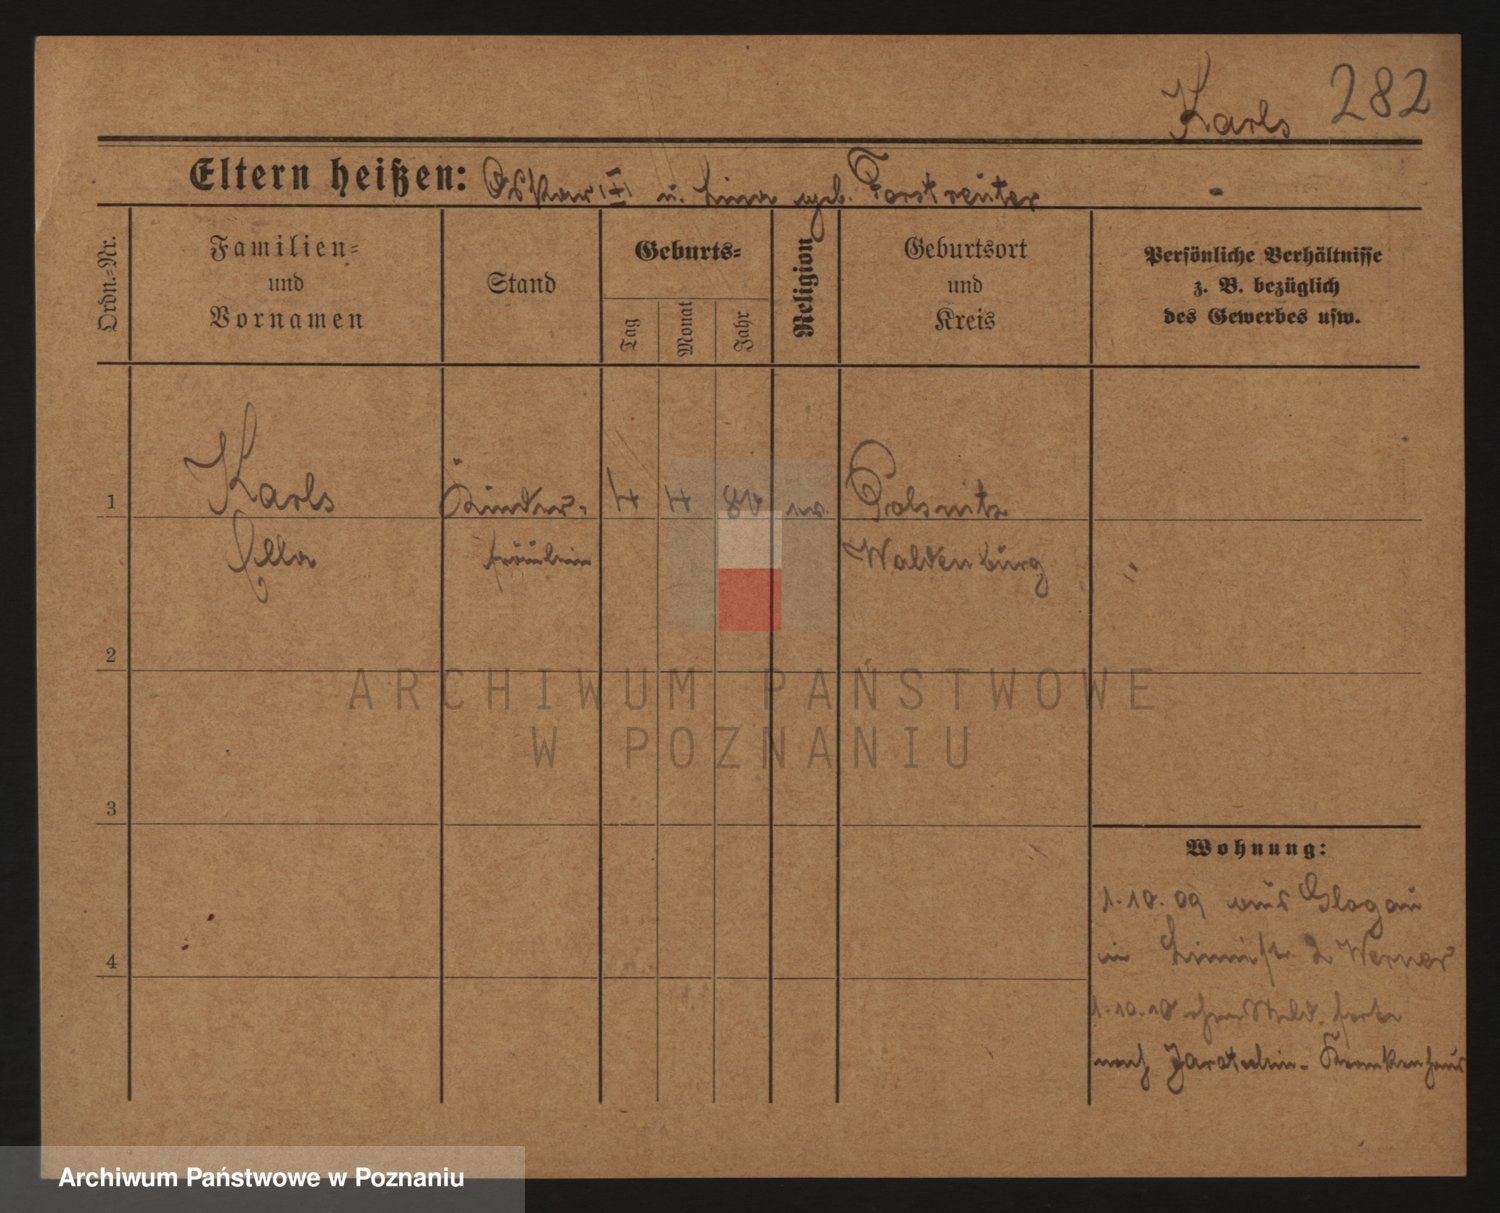 Karls 282
Eltern heißen: Oskar (†) u. Lina geb. Forstreuter
Ordn.-Nr.
Familien-
und
Vornamen
Stand
Geburts-
Tag
Monat
Jahr
Religion
Geburtsort
und
Kreis
Persönliche Verhältnisse
z. B. bezüglich
des Gewerbes usw.
1 Karls Kinder- 4 4 80 ev. Polsnitz
Ella fräulein Waldenburg
2
3
4
ARCHIWUM PAŃSTWOWE
W POZNANIU
Wohnung:
1.10.09 aus Glogau
in 2 Werner
1.10.10 ohne Meld. forts
nach Jarotschin. Krankenhaus
Archiwum Państwowe w Poznaniu